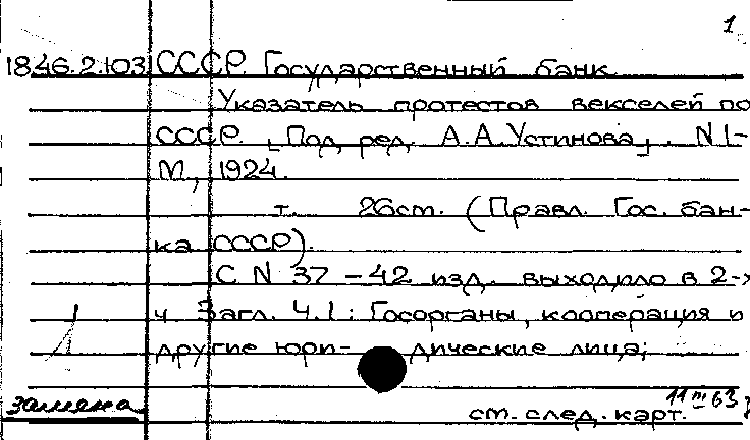 1
1846.2.103 СССР. Государственный банк.
Указатель протестов векселей по
СССР. [Под ред. А.А.Устинова]. N1-
М., 1924.
т. 26см. (Правл. Гос. бан-
ка СССР).
С N 37-42 изд. выходило в 2-х
ч. Загл. Ч.1: Госорганы, кооперация и
другие юри- дические лица;
замена
11 III 63
см. след. карт.